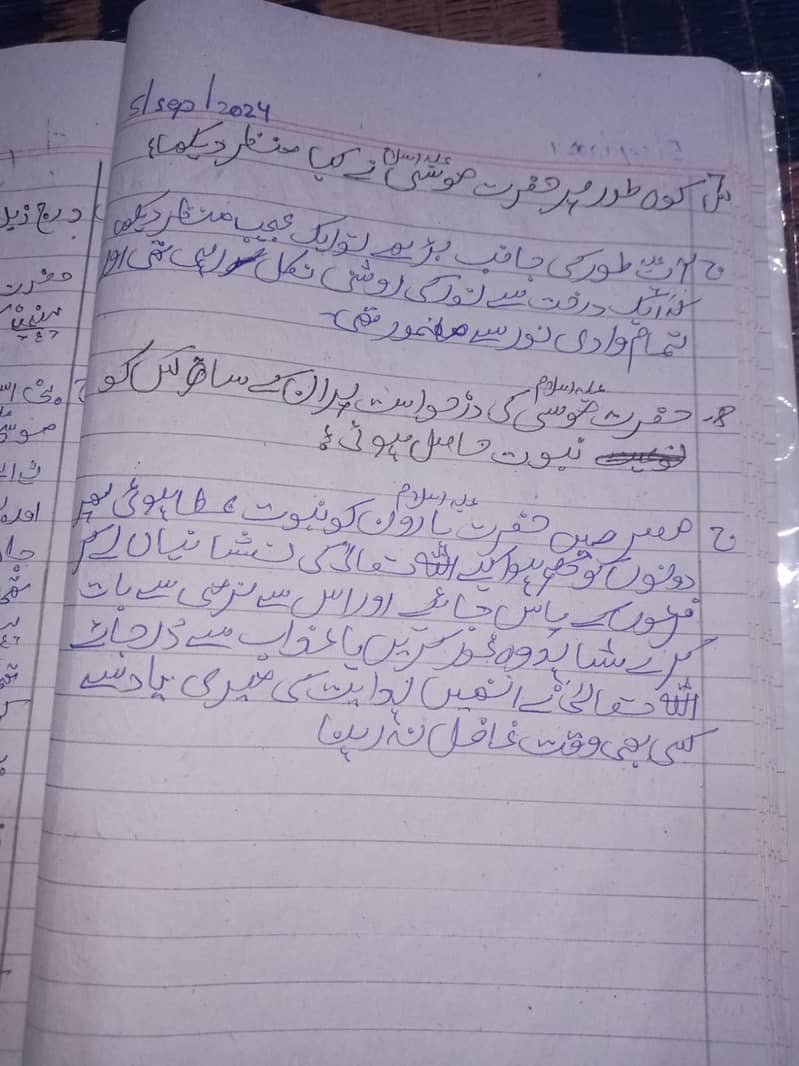 5/sep/2024
س کوہ طور پر حضرت موسیٰ علیہ اسلام نے کیا منظر دیکھا؟
ج آپؑ طور کی جانب بڑھے تو ایک عجیب منظر دیکھا
کہ ایک درخت سے نور کی روشنی نکل رہی تھی اور
تمام وادی نور سے معمور تھی۔
8۔ حضرت موسیٰ علیہ اسلام کی درخواست پر ان کے ساتھ کس کو
نبوت حاصل ہوئی؟
ج مصر میں حضرت ہارون علیہ اسلام کو نبوت عطا ہوئی پھر
دونوں کو حکم ہوا کہ اللہ تعالیٰ کی نشانیاں لے کر
فرعون کے پاس جائے اور اس سے نرمی سے بات
کرے شاید وہ غور کریں یا عذاب سے ڈر جائے
اللہ تعالیٰ نے انھیں ہدایت کی میری یاد سے
کسی بھی وقت غافل نہ رہنا
درج ذیل
حضرت